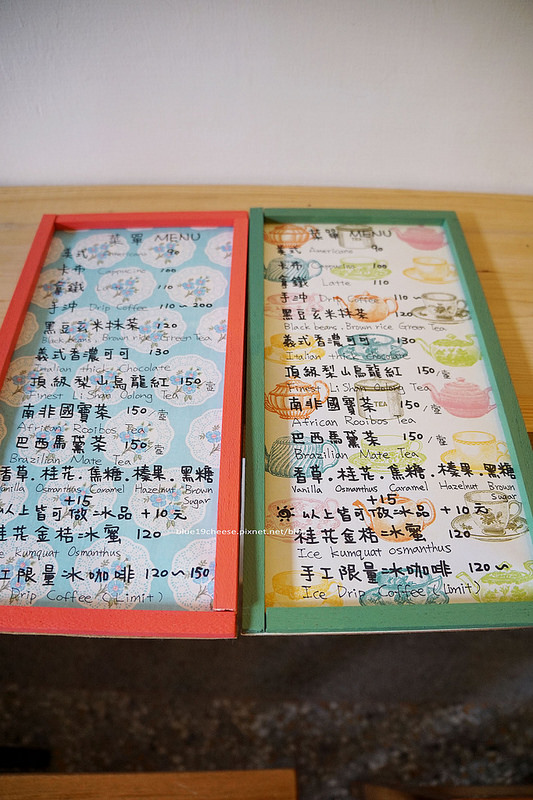 菜單 MENU
義式 Americano 90
卡布 Cappuccino 100
拿鐵 Latte 110
手沖 Drip Coffee 110～200
黑豆玄米抹茶 120
Black beans, Brown rice Green Tea
義式香濃可可 130
Italian thick chocolate
頂級梨山烏龍紅 150/壺
Finest Li Shan Oolong Tea
南非國寶茶 150/壺
African Rooibos Tea
巴西馬黛茶 150/壺
Brazilian Mate Tea
香草.桂花.焦糖.榛果.黑糖
Vanilla Osmanthus Caramel Hazelnut Brown Sugar
+15
以上皆可做冰品 +10元
桂花金桔冰蜜 120
工限量冰咖啡 120～150
Drip Coffee (Limit)
菜單 MENU
義式 Americano 90
卡布 100
拿鐵 Latte 110
手沖 Drip Coffee 110～
黑豆玄米抹茶 120
Black beans, Brown rice Green Tea
義式香濃可可 130
Italian thick chocolate
頂級梨山烏龍紅 150/壺
Finest Li Shan Oolong Tea
南非國寶茶 150/壺
African Rooibos Tea
巴西馬黛茶 150/壺
Brazilian Mate Tea
香草.桂花.焦糖.榛果.黑糖
Vanilla Osmanthus Caramel Hazelnut Brown Sugar
+15
以上皆可做冰品 +10元
桂花金桔冰蜜 120
Ice kumquat osmanthus
手工限量冰咖啡 120～
Ice Drip Coffee (Limit)
blue19cheese.pixnet.net/bl